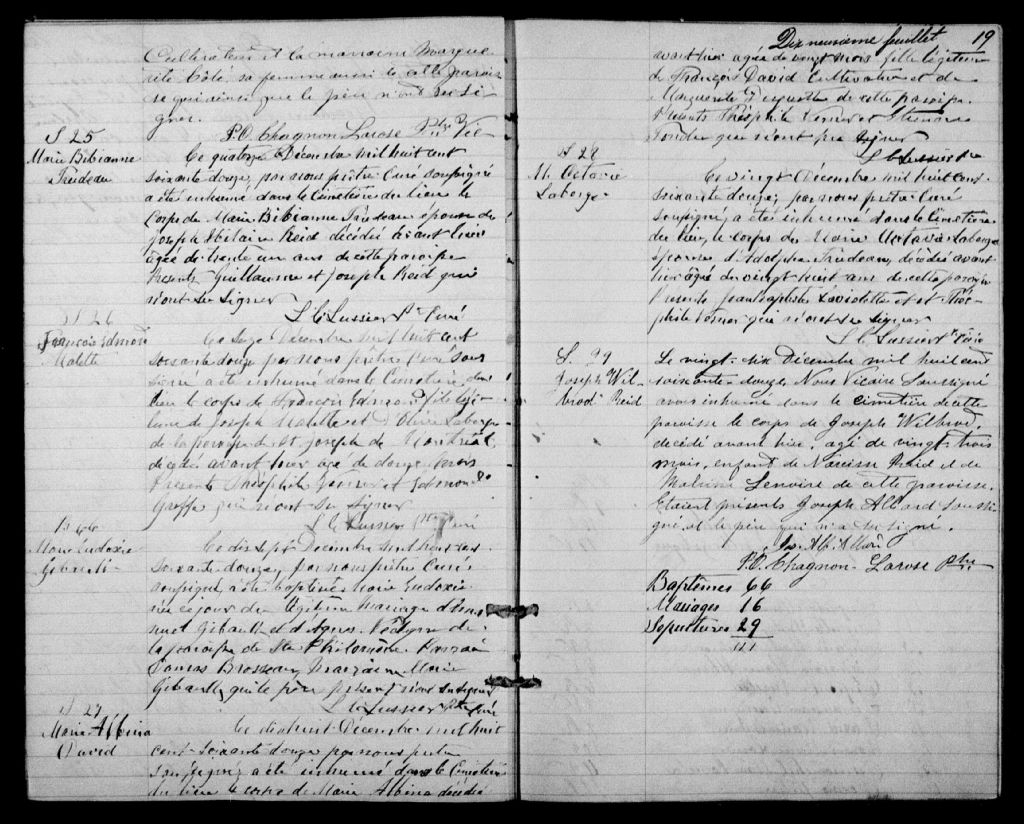 Cultivateur et la marraine Margue
rite Côté sa femme aussi de cette parois
se qui ainsi que le père n'ont su si
gner.
P.O. Chagnon Larose Ptre Vic
S 25
Marie Bibianne
Trudeau
Le quatorze Décembre mil huit cent
soixante douze, par nous prêtre Curé soussigné
a été inhumé dans le Cimetière du lieu le
Corps de Marie Bibianne Trudeau épouse de
Joseph Hilaire Reid décédée avant hier
agée de trente un ans de cette paroisse
Presents Guillaume et Joseph Reid qui
n'ont su signer
L C Lussier Ptre Curé
S 26
François Edmond
Malette
Le seize Décembre mil huit cent
soixante douze par nous prêtre Curé sous
signé a été inhumé dans le Cimetière du
lieu le corps de François Edmond fils légi
time de Joseph Malette et d'Olivine Laberge
de la paroisse de St Joseph de Montréal
décédé avant hier agé de douze mois
Presents Théophile et Edmond
qui n'ont su signer
L C Lussier Ptre Curé
B 66
Marie Eudoxie
Gibault
Le dix sept Décembre mil huit cent
soixante douze, par nous prêtre Curé
soussigné, a été baptisée Marie Eudoxie
née ce jour du légitime mariage d'Emma
nuel Gibault et d'Agnes
la paroisse de Ste Philomène. Parrain
Brosseau, Marraine Marie
Gibault qui le père présent n'ont su signer
L C Lussier Ptre Curé
S 27
Marie Albina
David
Le dix huit Décembre mil huit
cent soixante douze par nous prêtre
soussigné, a été inhumé dans le Cimetière
du lieu le corps de Marie Albina décédée
Dix neuvième feuillet 19
avant hier agée de vingt mois fille légitime
de François David Cultivateur et de
Marguerite de cette paroisse.
Présents Théophile et
qui n'ont pu signer
L C Lussier Ptre
S 28
M. Octavie
Laberge
Le vingt Décembre mil huit cent
soixante douze, par nous prêtre Curé
soussigné, a été inhumé dans le Cimetière
du lieu, le corps de Marie Octavie Laberge
épouse d'Adolphe Trudeau, décédée avant
hier agée de vingt huit ans de cette paroisse
Presents Jean Baptiste Laviolette et Théo
phile qui n'ont su signer
L C Lussier Ptre Curé
S. 29
Joseph Wil-
brod Reid
Le vingt-six Décembre mil huit cent
soixante-douze, Nous Vicaire Soussigné
avons inhumé dans le cimetière de cette
paroisse le corps de Joseph Wilbrod,
décédé avant hier, agé de vingt-trois
mois, enfant de Narcisse Reid et de
Malvina Lenoire de cette paroisse.
Etaient présents Joseph Allard soussi
gné, et le père qui n'a su signé.
Jos. Alf. Allard
P.O. Chagnon-Larose Ptre
Baptêmes 66
Mariages 16
Sépultures 29
111